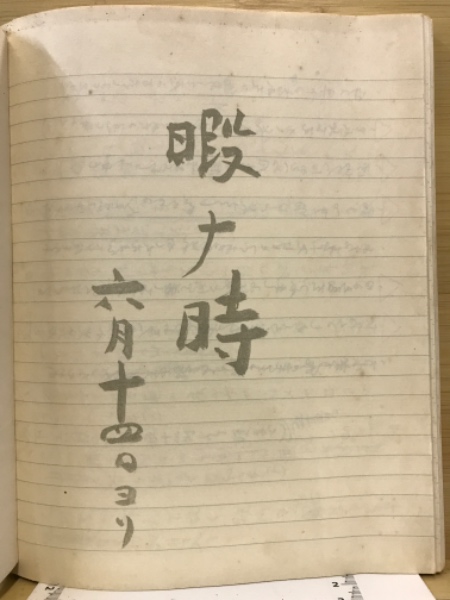 暇ナ時
六月十四日ヨリ